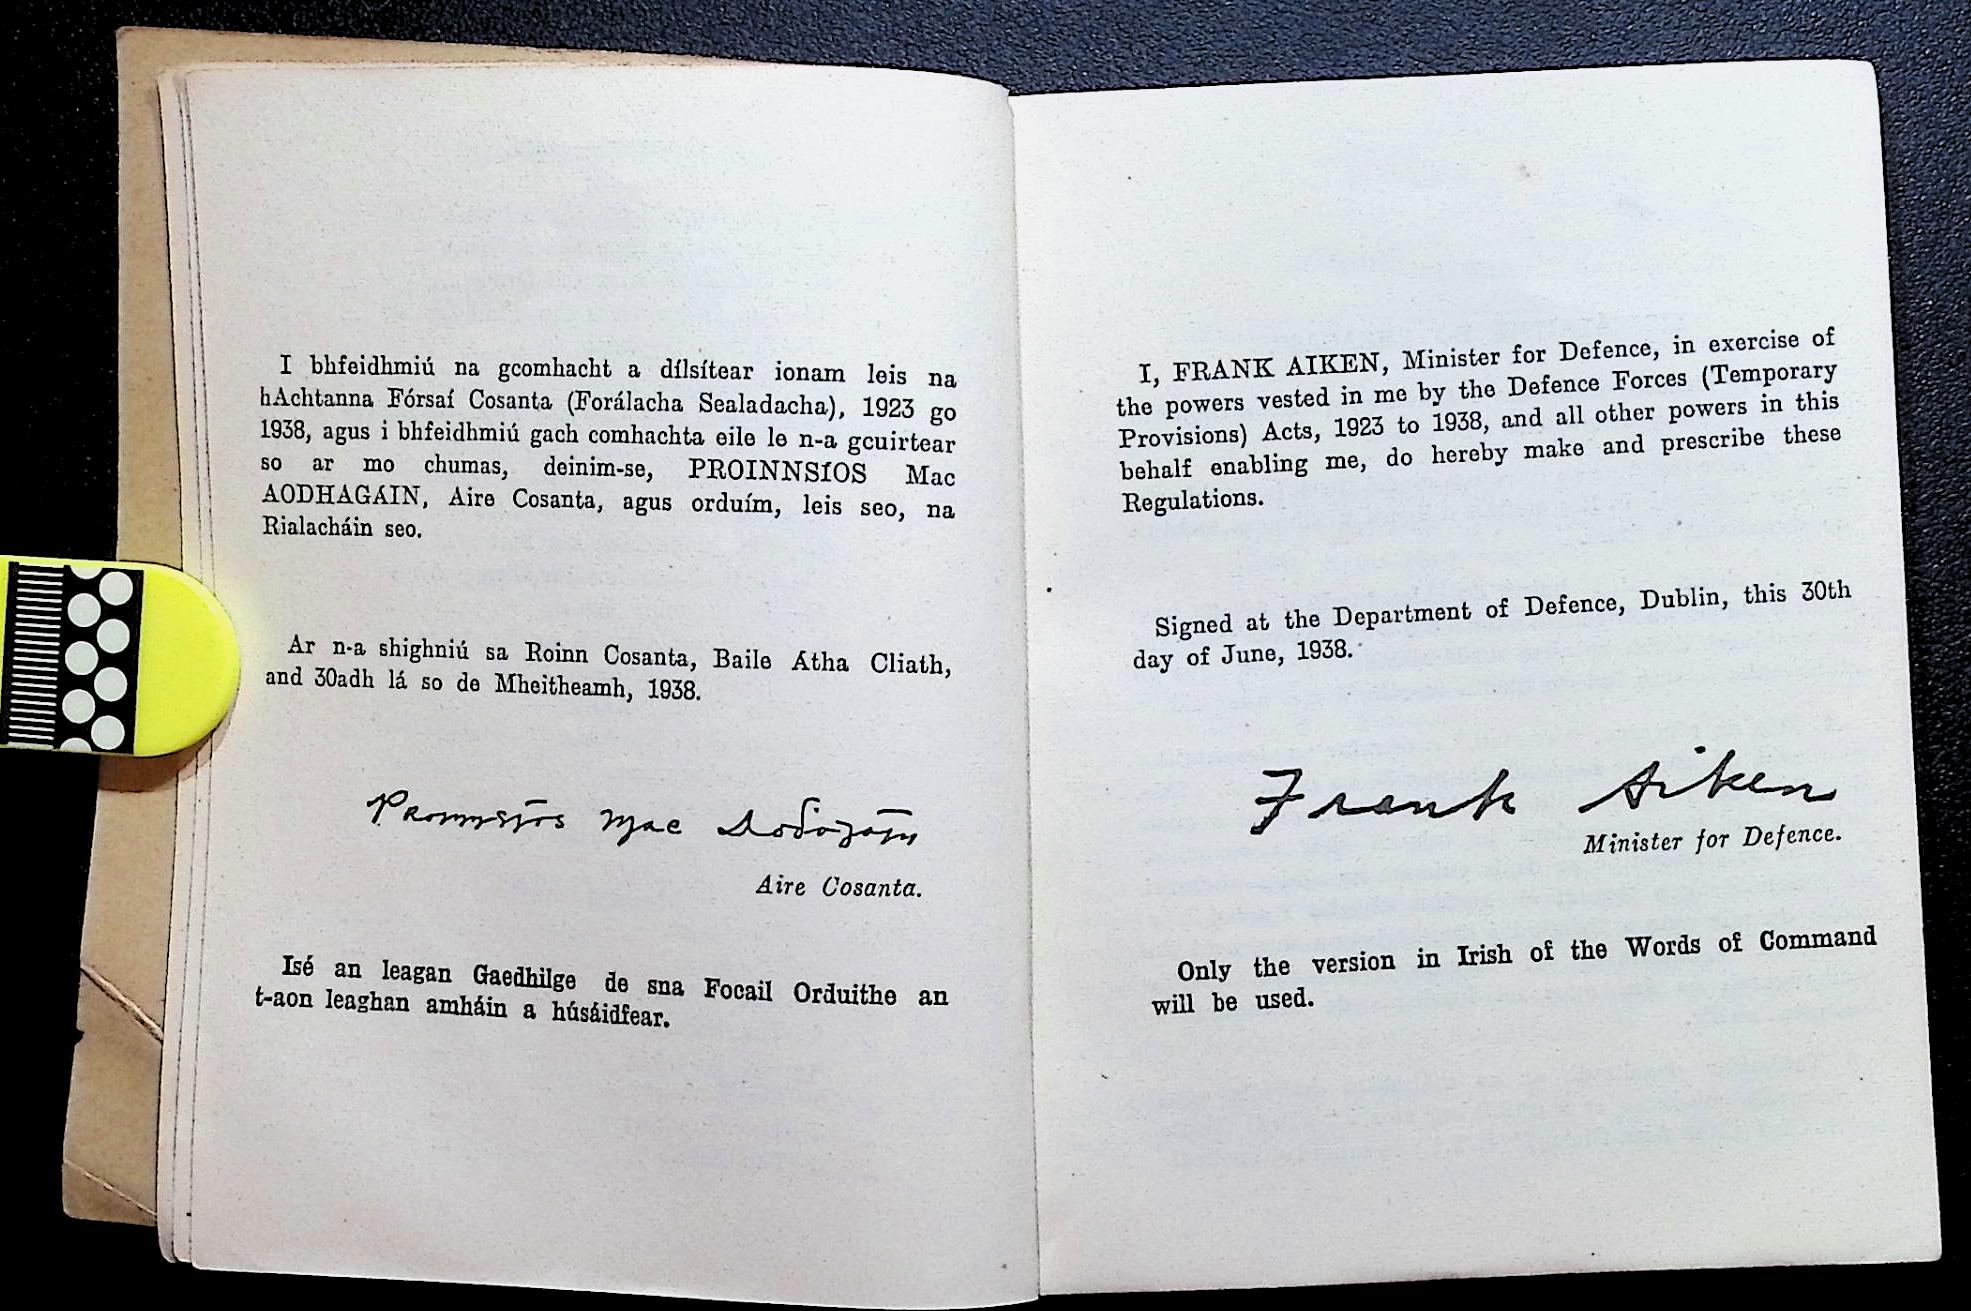 I bhfeidhmiú na gcomhacht a dílsítear ionam leis na
hAchtanna Fórsaí Cosanta (Forálacha Sealadacha), 1923 go
1938, agus i bhfeidhmiú gach comhachta eile le n-a gcuirtear
so ar mo chumas, deinim-se, PROINNSÍOS Mac
AODHAGÁIN, Aire Cosanta, agus orduím, leis seo, na
Rialacháin seo.
Ar n-a shighniú sa Roinn Cosanta, Baile Átha Cliath,
and 30adh lá so de Mheitheamh, 1938.
Proinnsíos Mac Aodhagáin
Aire Cosanta.
Isé an leagan Gaedhilge de sna Focail Orduithe an
t-aon leaghan amháin a húsáidfear.
I, FRANK AIKEN, Minister for Defence, in exercise of
the powers vested in me by the Defence Forces (Temporary
Provisions) Acts, 1923 to 1938, and all other powers in this
behalf enabling me, do hereby make and prescribe these
Regulations.
Signed at the Department of Defence, Dublin, this 30th
day of June, 1938.
Frank Aiken
Minister for Defence.
Only the version in Irish of the Words of Command
will be used.